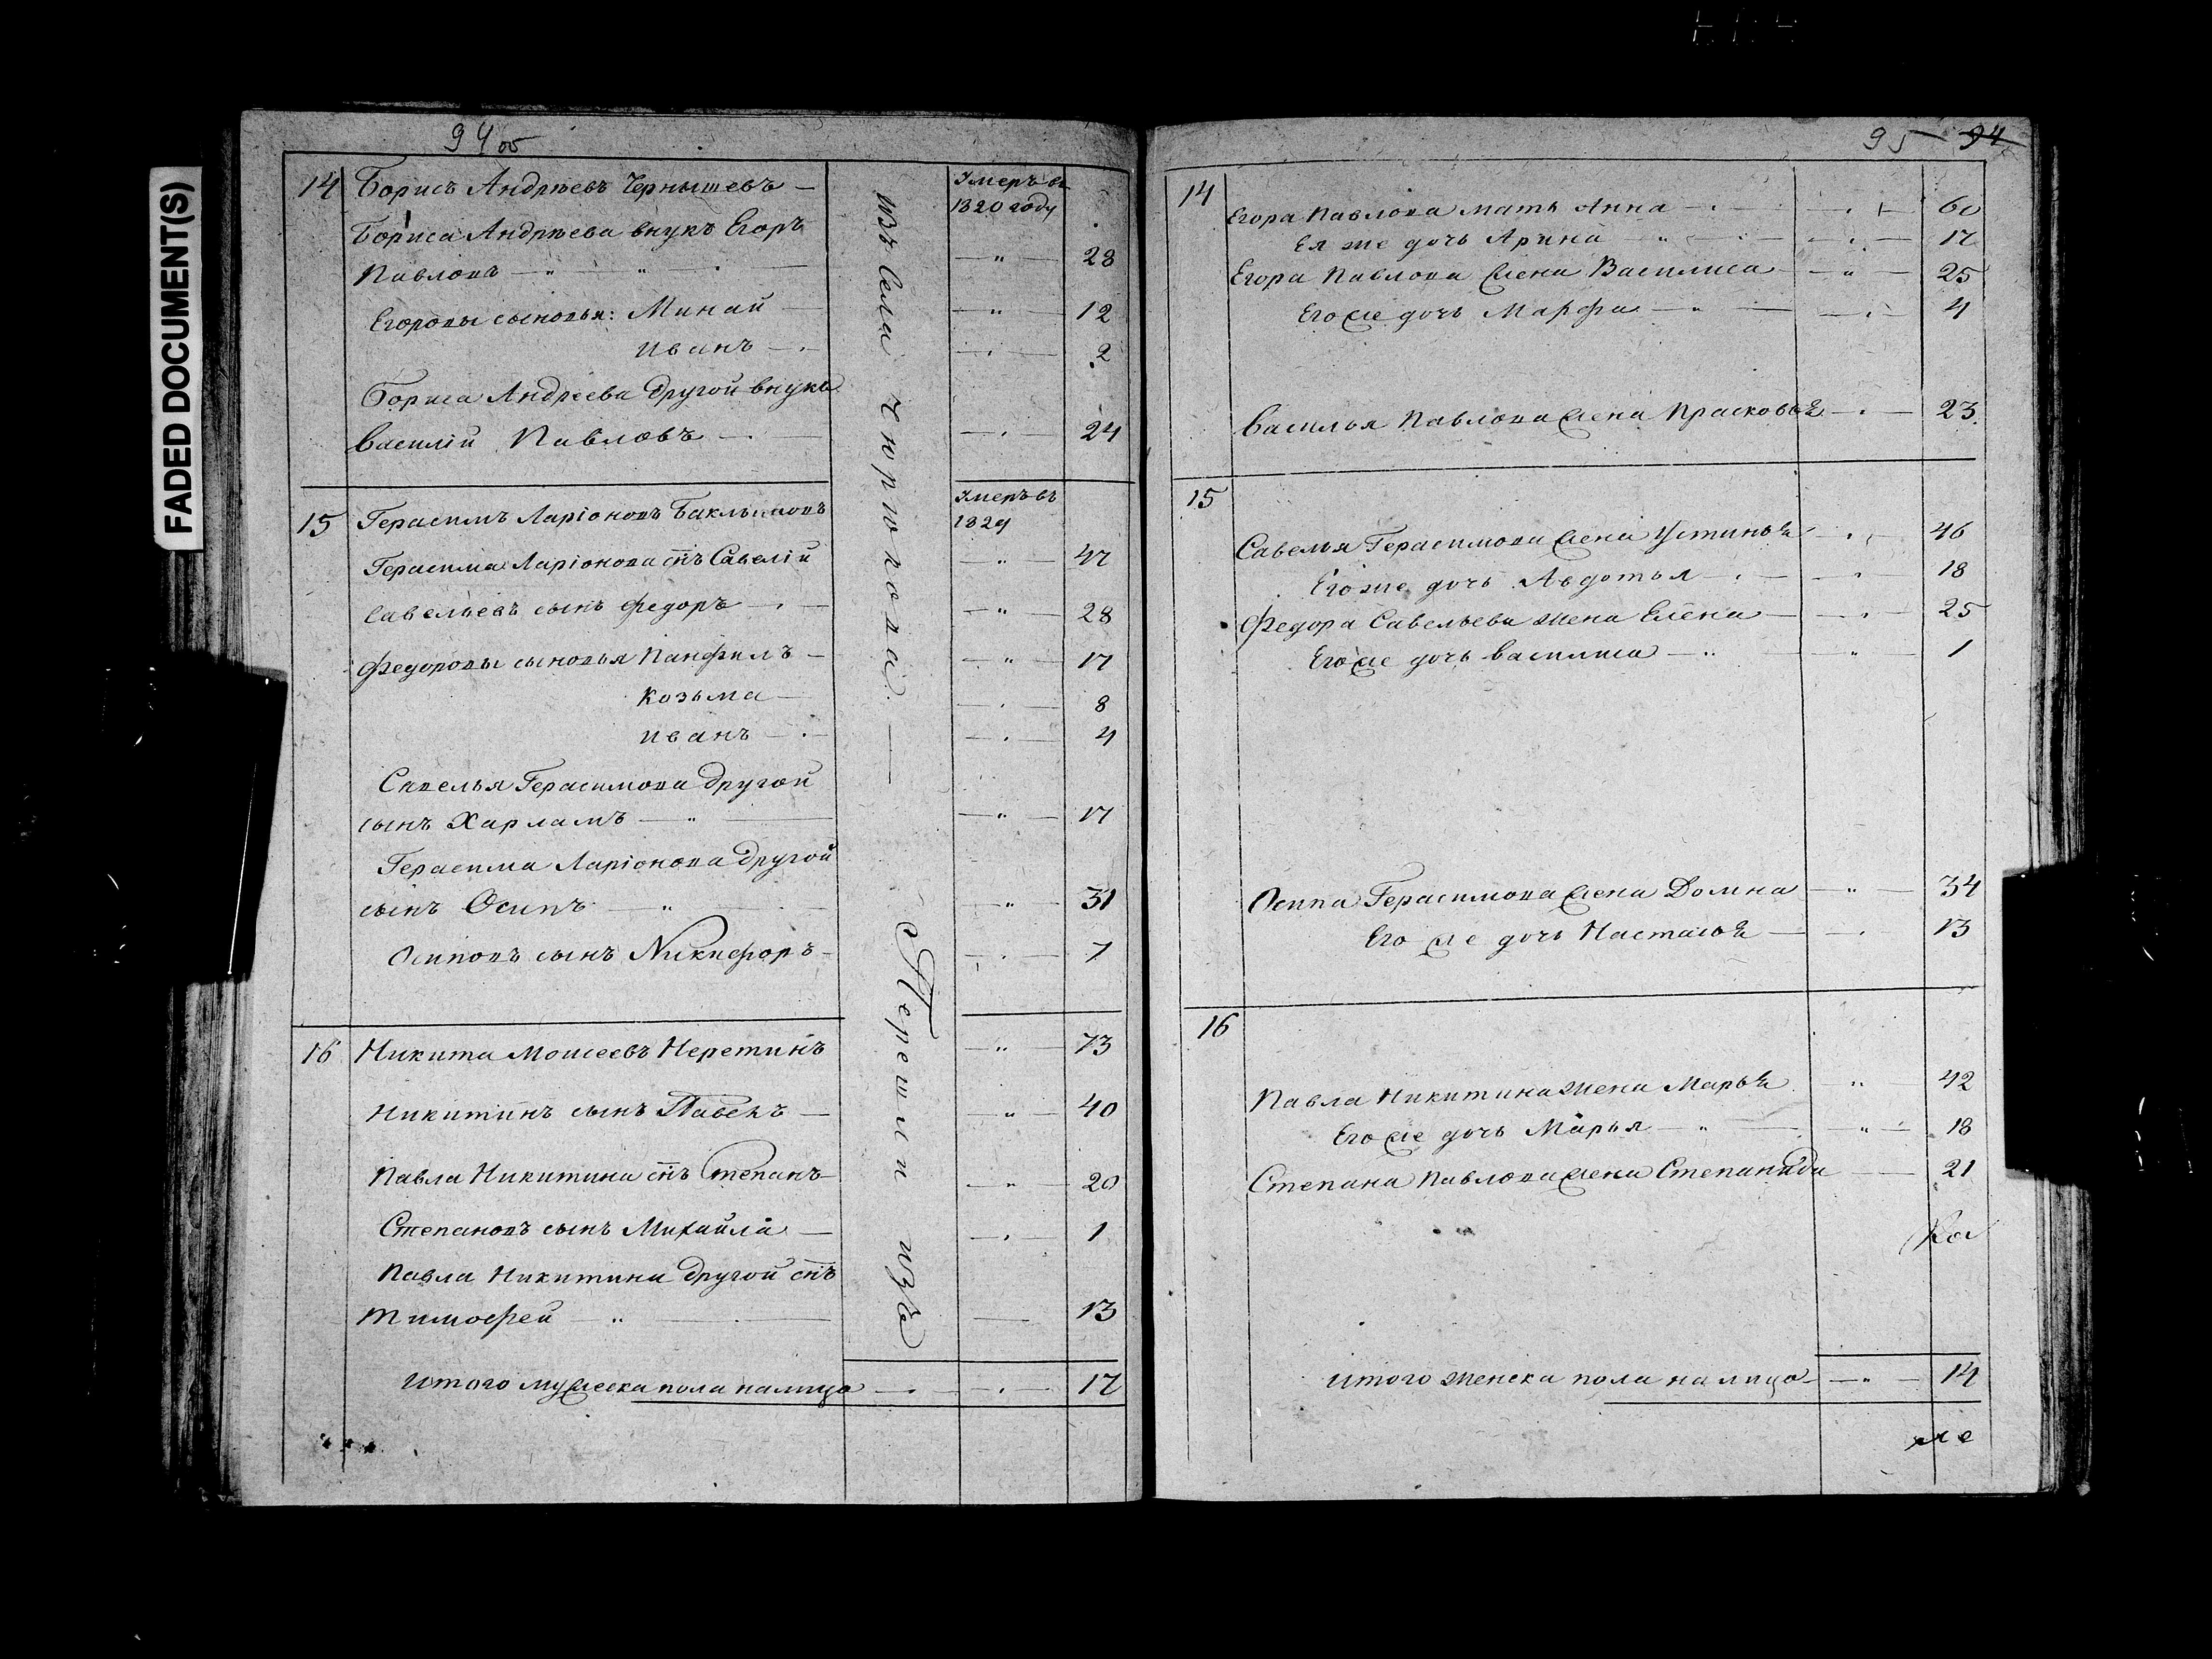 FADED DOCUMENT(S)
94 об
14 Борисъ Андреевъ Чернышевъ —
Умеръ въ
1820 году
Бориса Андреева внукъ Егоръ
Павловъ — " — " — — " — 28
Егоровы сыновья: Минай — — " — 12
Иванъ — — " — 2
Бориса Андреева другой внукъ
Василій Павловъ — — " — 24
15 Герасимъ Ларіоновъ
Умеръ въ
1829
Герасима Ларіонова снъ Савелій — " — 47
Савельевъ сынъ Федоръ — — " — 28
Федоровы сыновья Панфилъ — — " — 17
Козьма — — " — 8
Иванъ — — " — 4
Савелья Герасимова другой
сынъ Харламъ — " — — " — 17
Герасима Ларіонова другой
сынъ Осипъ — " — — " — 31
Осиповъ сынъ Никифоръ — — " — 7
16 Никита Моисеевъ Неретинъ — " — 73
Никитинъ сынъ Павелъ — — " — 40
Павла Никитина снъ Степанъ — — " — 20
Степановъ сынъ Михайла — — " — 1
Павла Никитина другой снъ
Тимофей — " — — 13
Итого мужеска пола налицо — " — 17
Перешли изъ
изъ села
95 94
14
Егора Павлова мать Анна — " — 60
Ея же дочь Арина — " — 17
Егора Павлова жена Василиса — " — 25
Его же дочь Марфа — " — 4
Василья Павлова жена Прасковья — " — 23
15
Савелья Герасимова жена Устинья — " — 46
Его же дочь Авдотья — " — 18
Федора Савельева жена Елена — " — 25
Его же дочь Василиса — " — 1
Осипа Герасимова жена Домна — " — 34
Его же дочь Настасья — " — 13
16
Павла Никитина жена Марья " — 42
Его же дочь Марья — " — 18
Степана Павлова жена Степанида — 21
Итого женска пола налицо — " — 14